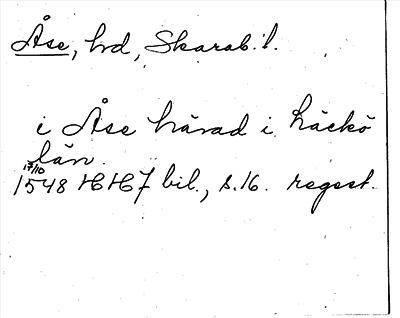 Åse, hd, Skarab. l.
i Åse härad i Läckö
län.
17/10
1548 HH7 bil., s. 16. regest.